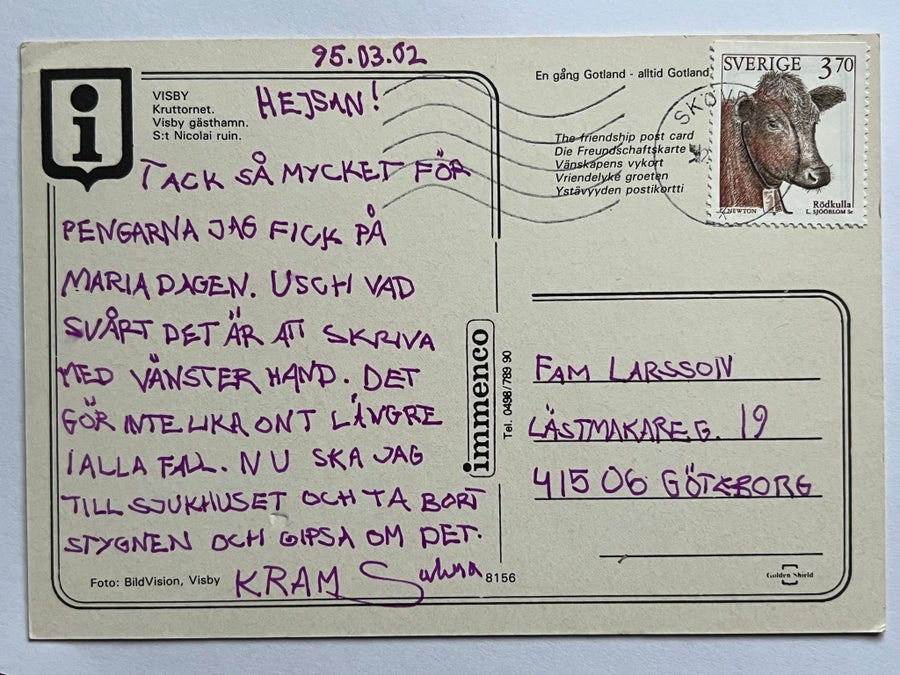 95.03.02
VISBY
Kruttornet.
Visby gästhamn.
S:t Nicolai ruin.
HEJSAN!
TACK SÅ MYCKET FÖR
PENGARNA JAG FICK PÅ
MARIA DAGEN. USCH VAD
SVÅRT DET ÄR ATT SKRIVA
MED VÄNSTER HAND. DET
GÖR INTE LIKA ONT LÄNGRE
I ALLA FALL. NU SKA JAG
TILL SJUKHUSET OCH TA BORT
STYGNEN OCH GIPSA OM DET.
KRAM
Foto: BildVision, Visby
8156
immenco
Tel. 0498/789 90
En gång Gotland - alltid Gotland
The friendship post card
Die Freundschaftskarte
Vänskapens vykort
Vriendelyke groeten
Ystävyyden postikortti
SVERIGE 3.70
Z. NEWTON
Rödkulla
L. SJÖÖBLOM Sc
SKÖVDE
FAM LARSSON
LÄSTMAKAREG. 19
415 06 GÖTEBORG
Golden Shield